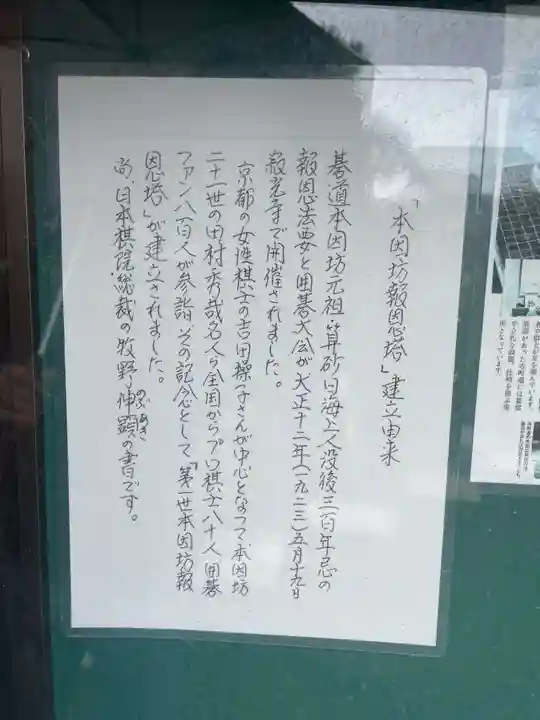 「本因坊報恩塔」建立由来
碁道本因坊元祖・算砂日海上人没後三百年忌の
報恩法要と囲碁大会が大正十二年(一九二三)五月十九日
寂光寺で開催されました。
京都の女性棋士の吉田操子さんが中心となって本因坊
二十一世の田村秀哉名人や全国からプロ棋士八十人、囲碁
ファン八百人が参詣、その記念として「第一世本因坊報
恩塔」が建立されました。
尚、日本棋院総裁の牧野伸顕の書です。
のぶあき